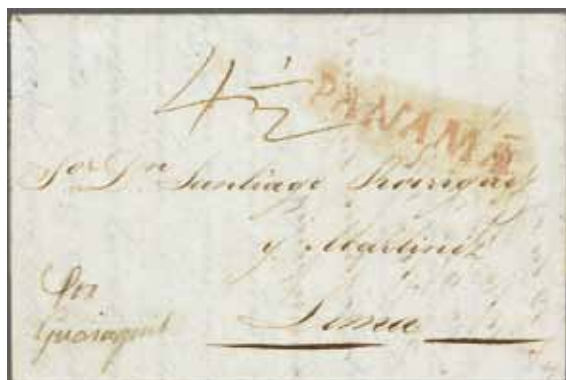 4½
PANAMÁ
Sor Dn Santiago
y Martinez
Lima
Por
Guaiaquil